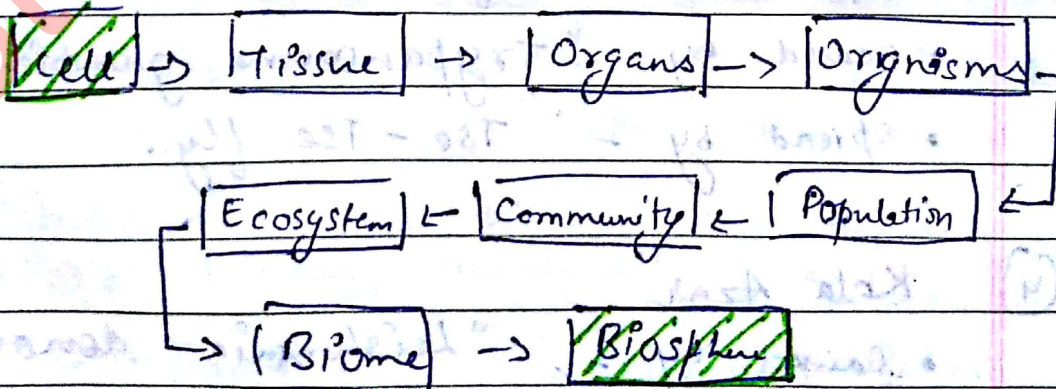 Cell → Tissue → Organs → Orignisms
Population
Community
Ecosystem
Biome → Biosphere